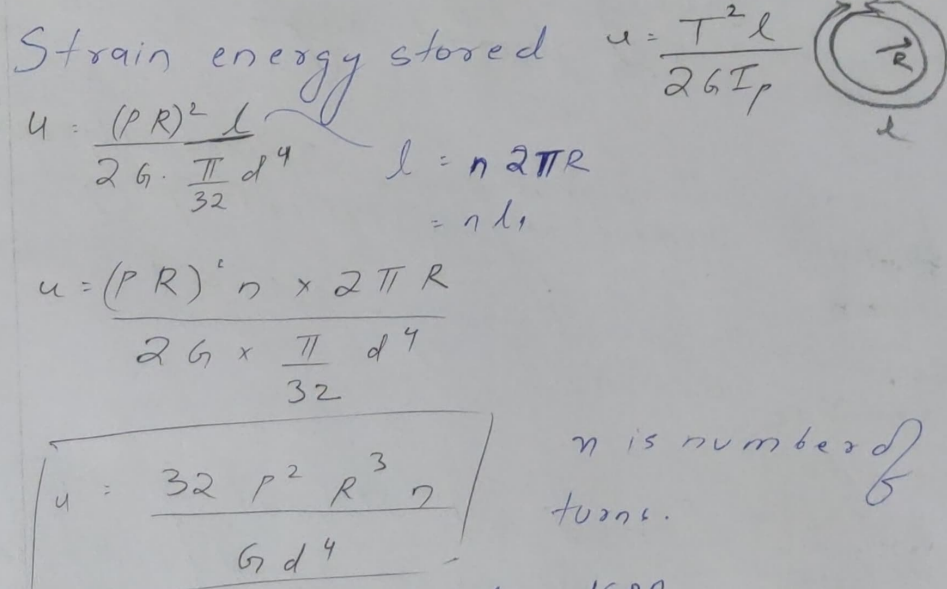 Strain energy stored u = T² l / 2 G Ip
R
l
u = (P R)² l / 2 G · π/32 d⁴
l = n 2πR
= n l₁
u = (P R)² n × 2 π R / 2 G × π/32 d⁴
u = 32 P² R³ n / G d⁴
n is number of
turns.